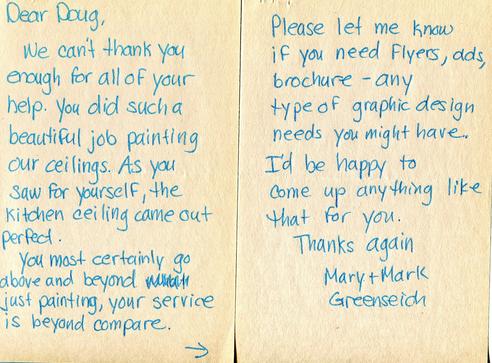 Dear Doug,
We can't thank you
enough for all of your
help. You did such a
beautiful job painting
our ceilings. As you
saw for yourself, the
kitchen ceiling came out
perfect.
You most certainly go
above and beyond
just painting, your service
is beyond compare.
Please let me know
if you need flyers, ads,
brochure - any
type of graphic design
needs you might have.
I'd be happy to
come up anything like
that for you.
Thanks again
Mary + Mark
Greenseich